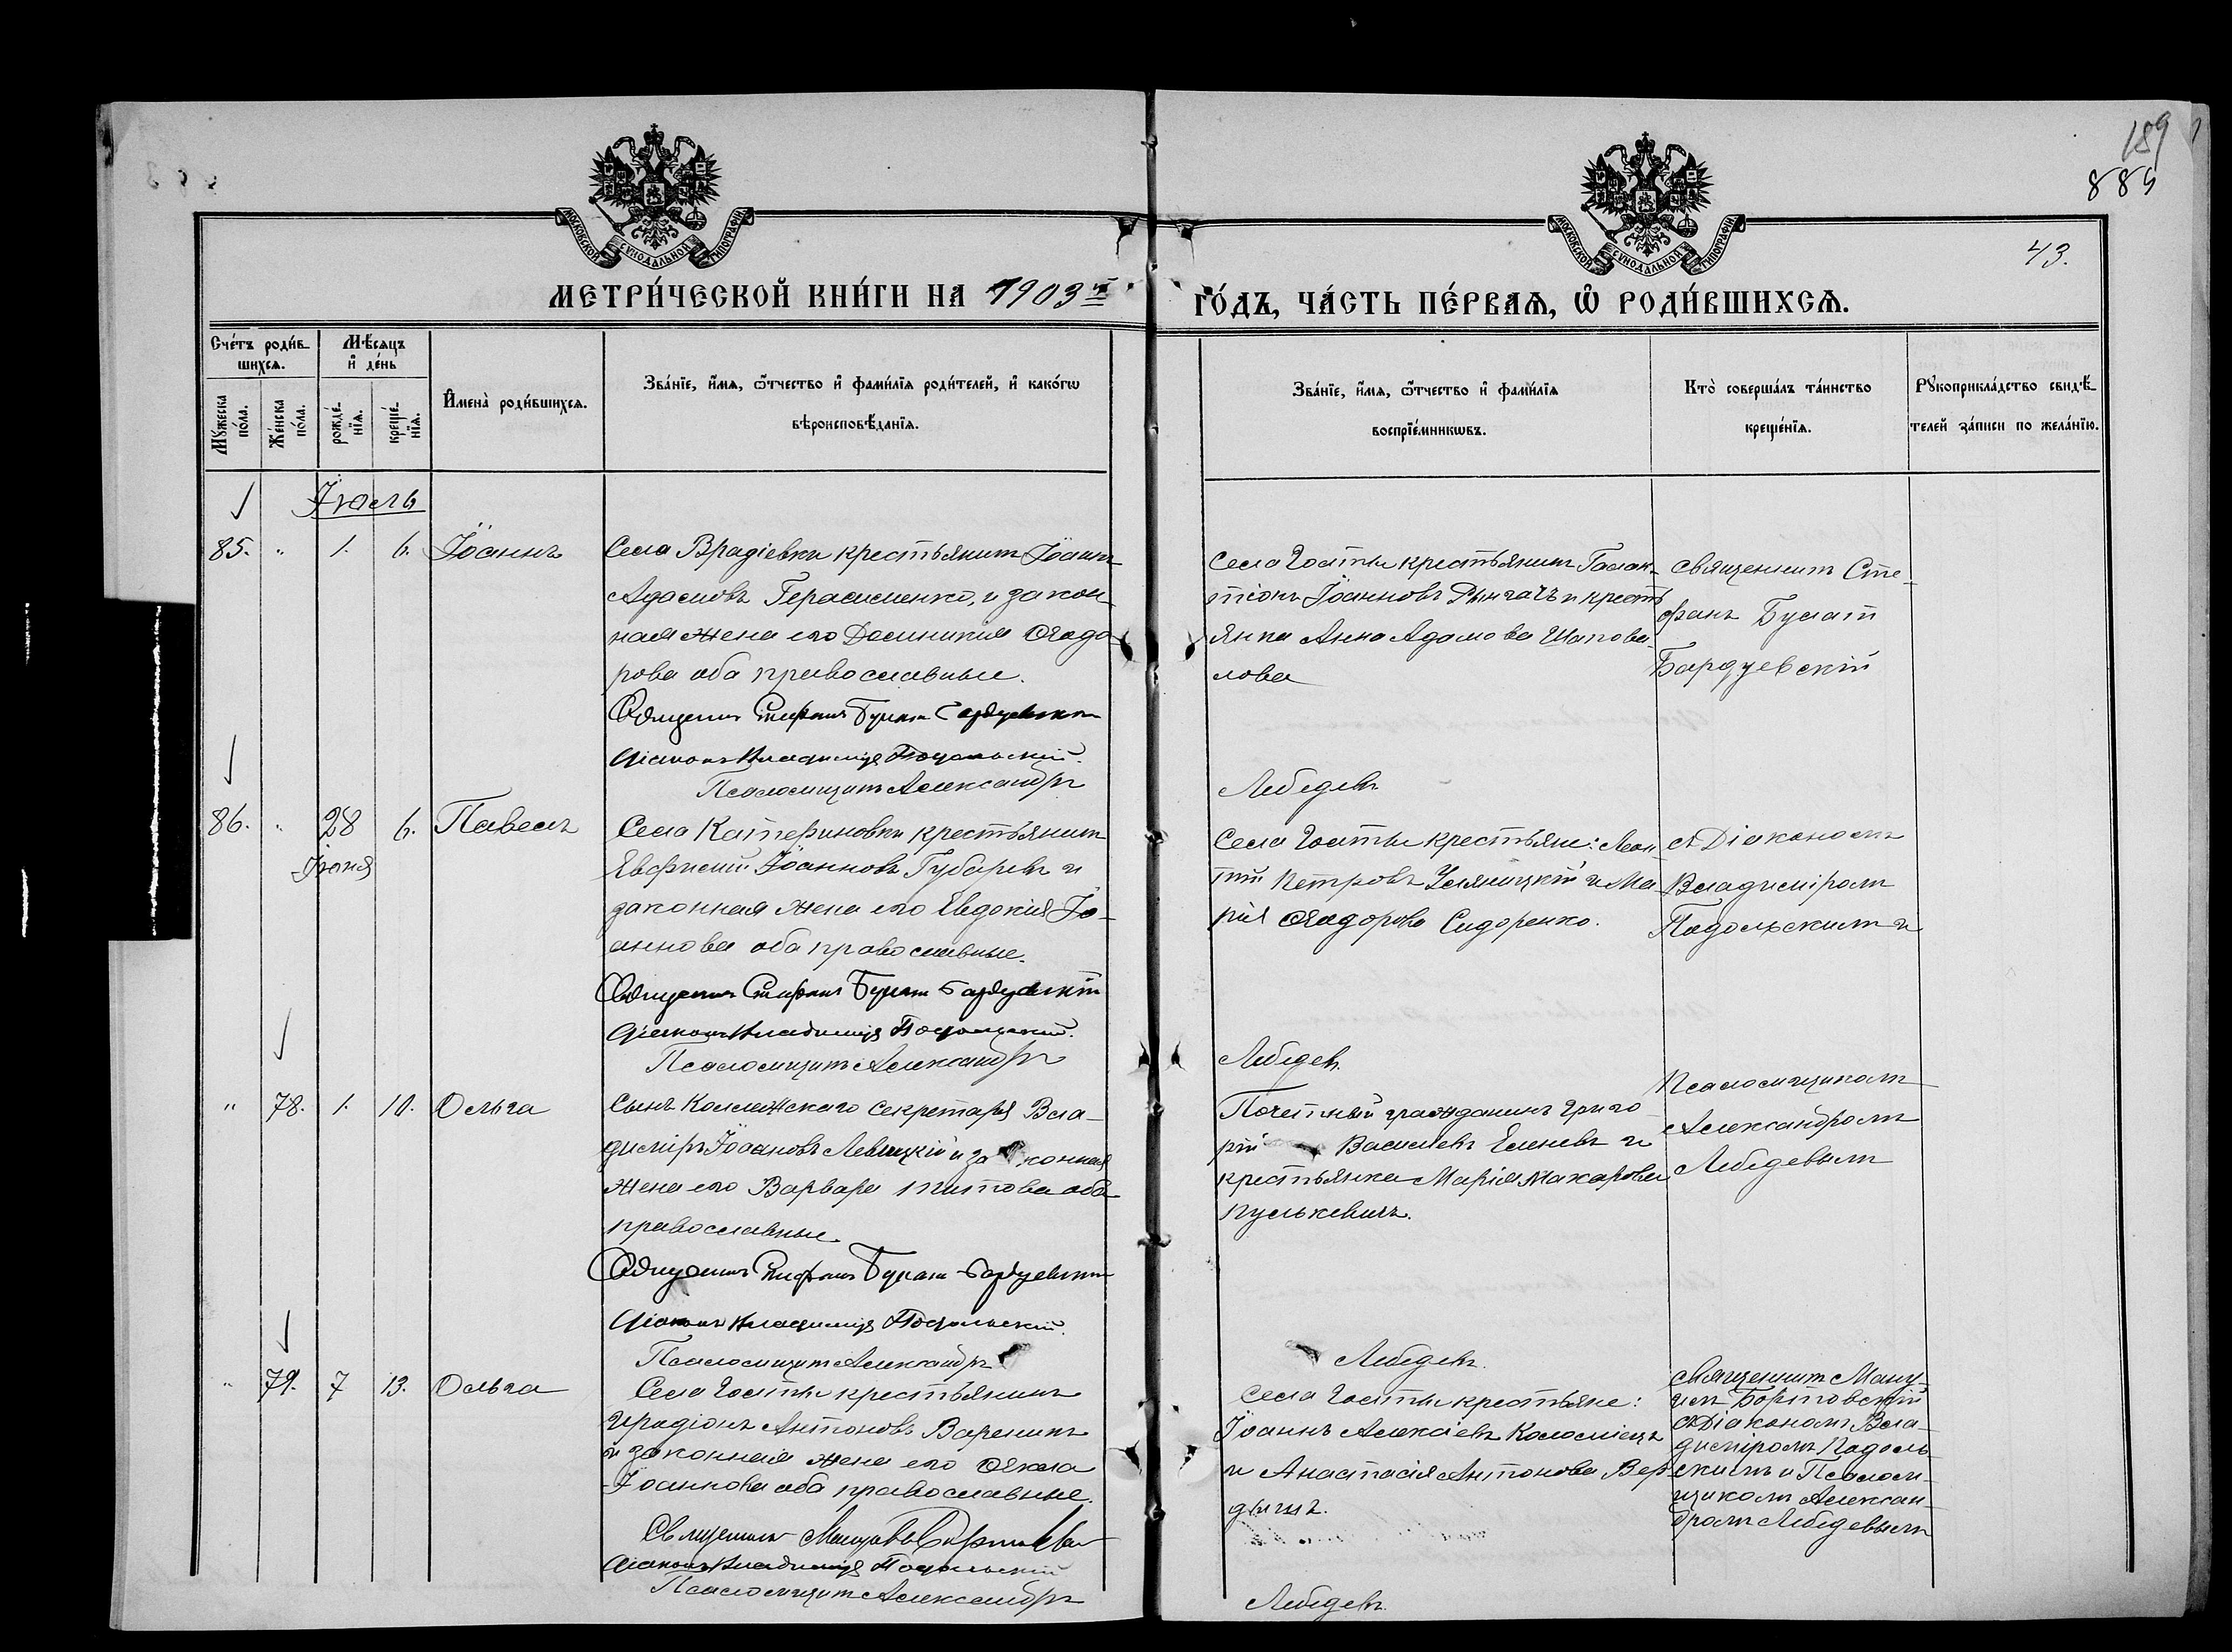 189
885
43.
МОСКОВСКОЙ СѴНОДАЛЬНОЙ ТИПОГРАФІИ
МОСКОВСКОЙ СѴНОДАЛЬНОЙ ТИПОГРАФІИ
МЕТРИ́ЧЕСКОЙ КНИ́ГИ НА 1903й
ГО́ДЪ, ЧА́СТЬ ПЕ́РВАѦ, Ѡ҆ РОДИ́ВШИХСѦ.
Сче́тъ роди́в-
шихсѧ.
Мꙋ́жеска
по́ла.
Же́нска
по́ла.
Мѣ́сѧцъ
и҆ де́нь
рожде́-
нїѧ.
креще́-
нїѧ.
И҆мена̀ роди́вшихсѧ.
Зва́нїе, и҆́мѧ, ѻ҆́тчество и҆ фами́лїѧ роди́телей, и҆ како́гѡ
вѣроисповѣ́данїѧ.
Зва́нїе, и҆́мѧ, ѻ҆́тчество и҆ фами́лїѧ
воспрїе́мникѡвъ.
Кто̀ соверша́лъ та́инство
креще́нїѧ.
Рꙋкоприкла́дство свидѣ́-
телей за́писи по жела́нїю.
Іюль
85. " 1. 6. Іоаннъ
Села Врадіевки крестьянинъ Іоаннъ
Адамовъ Герасименко, и закон-
ная жена его Домникия Ѳеодо-
рова оба православные.
Священникъ Стефанъ Булат Бардуевскій
Діаконъ Владиміръ Подольскій.
Псаломщикъ Александръ
Села Гоаты крестьянинъ Галак-
тіонъ Іоанновъ Рынгачъ и кресть
янка Анна Адамова Шапова-
лова
Лебедевъ
Священникъ Сте-
фанъ Булат
Бардуевскій
86. " 28 6. Павелъ
Іюня
Села Катериновки крестьянинъ
Евфимій Іоанновъ Губаревъ и
законная жена его Евдокия Іо-
аннова оба православные.
Священникъ Стефанъ Булат Бардуевскій
Діаконъ Владиміръ Подольскій.
Псаломщикъ Александръ
Села Гоаты крестьяне: Леон
тій Петровъ и Ма-
рія Ѳеодорова Сидоренко.
Лебедевъ
съ Діакономъ
Владиміромъ
Подольскимъ и
" 78. 1. 10. Ольга
Сынъ Коллежскаго Секретаря Вла-
диміръ Іоановъ Левицкій и законная
жена его Варвара Титова оба
православные.
Священникъ Стефанъ Булат Бардуевскій
Діаконъ Владиміръ Подольскій.
Псаломщикъ Александръ
Почетный гражданинъ Григо-
рій Василіевъ Еленевъ и
крестьянка Марія Макарова
Пулькевичъ.
Лебедевъ.
Псаломщикомъ
Александромъ
Лебедевымъ
" 79. 7 13. Ольга
Села Гоаты крестьянинъ
Иродіонъ Антоновъ Вареникъ
и законная жена его Ѳекла
Іоаннова оба православные.
Священникъ
Діаконъ Владиміръ Подольскій
Псаломщикъ Александръ
Села Гоаты крестьяне:
Іоаннъ Алексіевъ Коломіецъ
и Анастасія Антонова Вер-
дышъ.
Лебедевъ.
Священникъ Ману-
илъ Бортовскій
съ Діакономъ Вла-
диміромъ Подоль-
скимъ и Псалом-
щикомъ Алексан-
дромъ Лебедевымъ